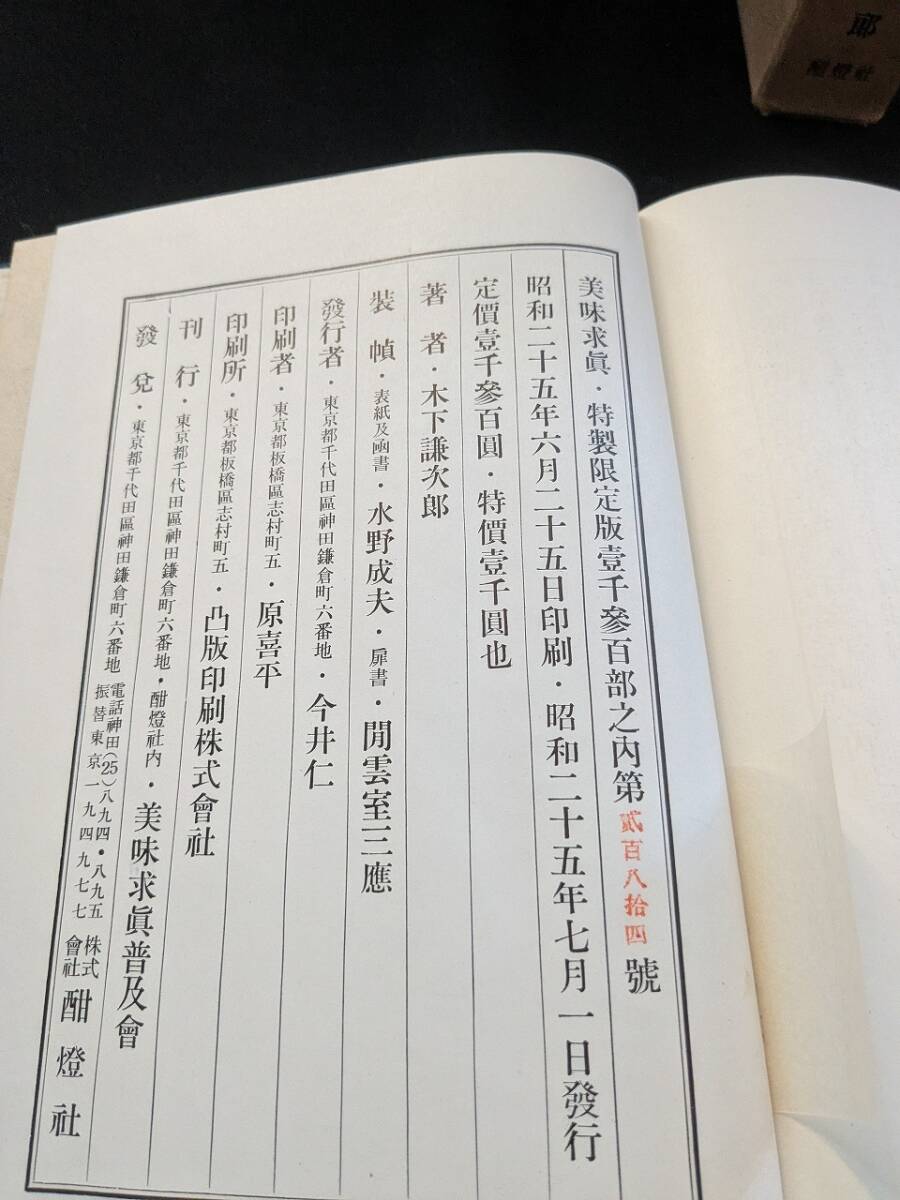 郎
酣燈社
美味求眞・特製限定版壹千參百部之內第貳百八拾四號
昭和二十五年六月二十五日印刷・昭和二十五年七月一日發行
定價壹千參百圓・特價壹千圓也
著者・木下謙次郎
裝幀・表紙及凾書・水野成夫・扉書・閒雲室三應
發行者・東京都千代田區神田鎌倉町六番地・今井仁
印刷者・東京都板橋區志村町五・原喜平
印刷所・東京都板橋區志村町五・凸版印刷株式會社
刊行・東京都千代田區神田鎌倉町六番地・酣燈社内・美味求眞普及會
發兌・東京都千代田區神田鎌倉町六番地
電話神田(25)八九四・八九五
振替東京一九四九七七
株式會社酣燈社